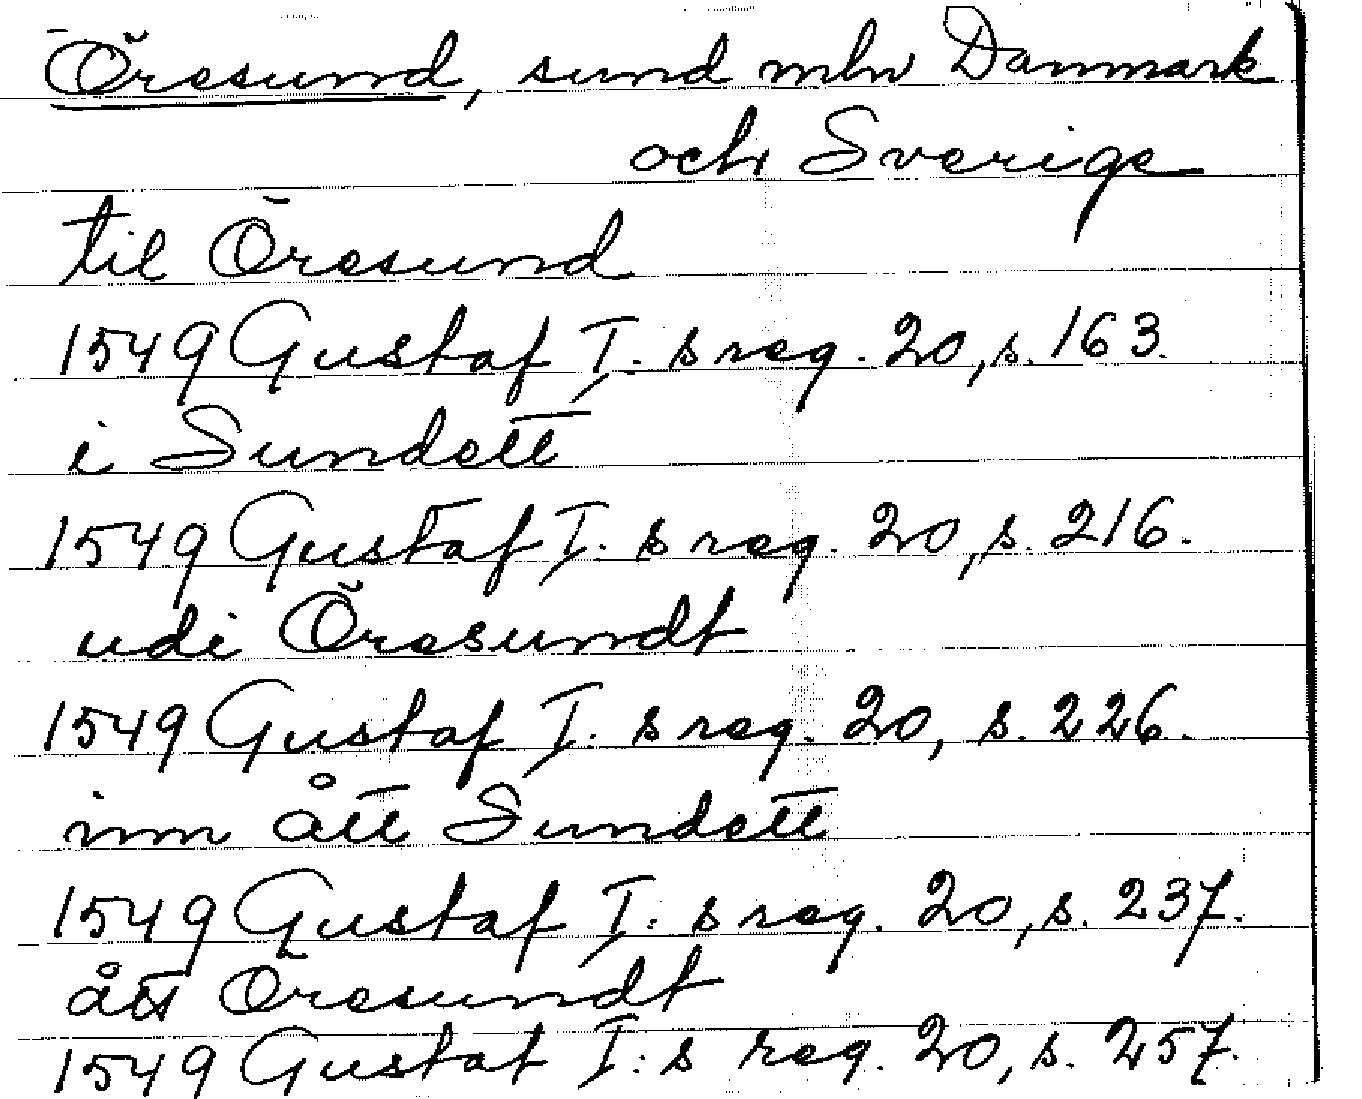 Öresund, sund mln Danmark
och Sverige
til Öresund
1549 Gustaf I:s reg. 20, s. 163.
i Sundett
1549 Gustaf I:s reg. 20, s. 216.
udi Öresundt
1549 Gustaf I:s reg. 20, s. 226.
inn ått Sundett
1549 Gustaf I:s reg. 20, s. 237.
ått Öresundt
1549 Gustaf I:s reg. 20, s. 257.